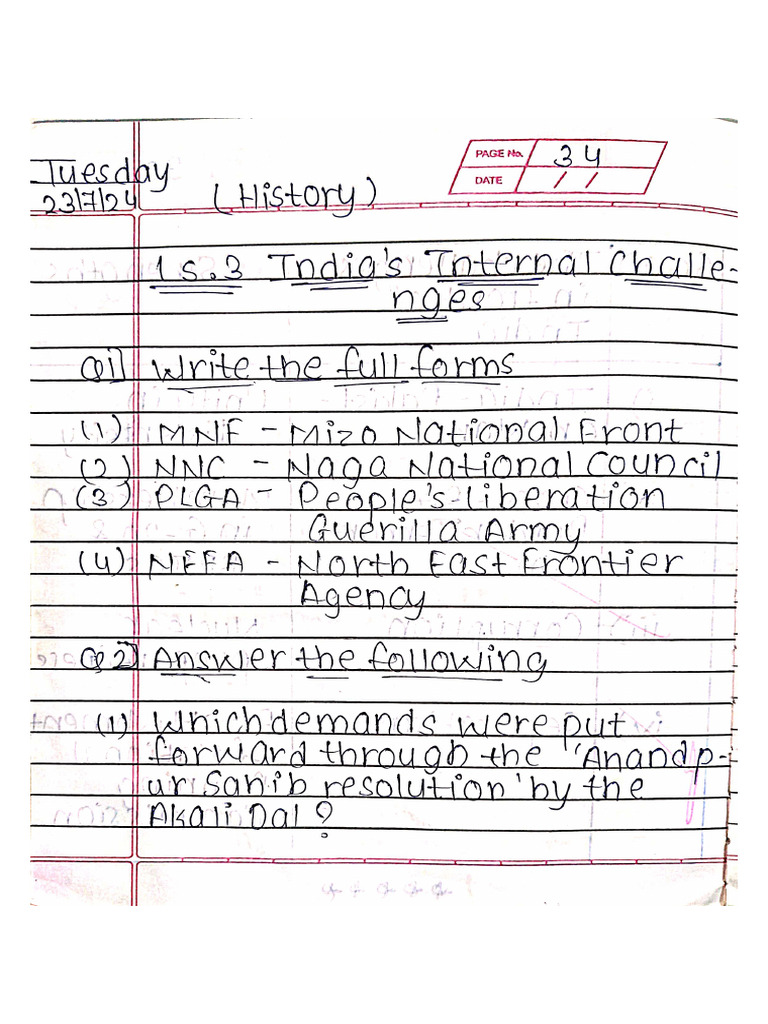 PAGE No. 34
DATE / /
Tuesday
23/7/24 (History)
Ls.3 India's Internal Challe-
nges
Q1] Write the full forms
(1) MNF - Mizo National Front
(2) NNC - Naga National Council
(3) PLGA - People's liberation
Guerilla Army
(4) NEFA - North East Frontier
Agency
Q2] Answer the following
(1) Which demands were put
forward through the 'Anandp-
ur Sahib resolution' by the
Akali Dal?